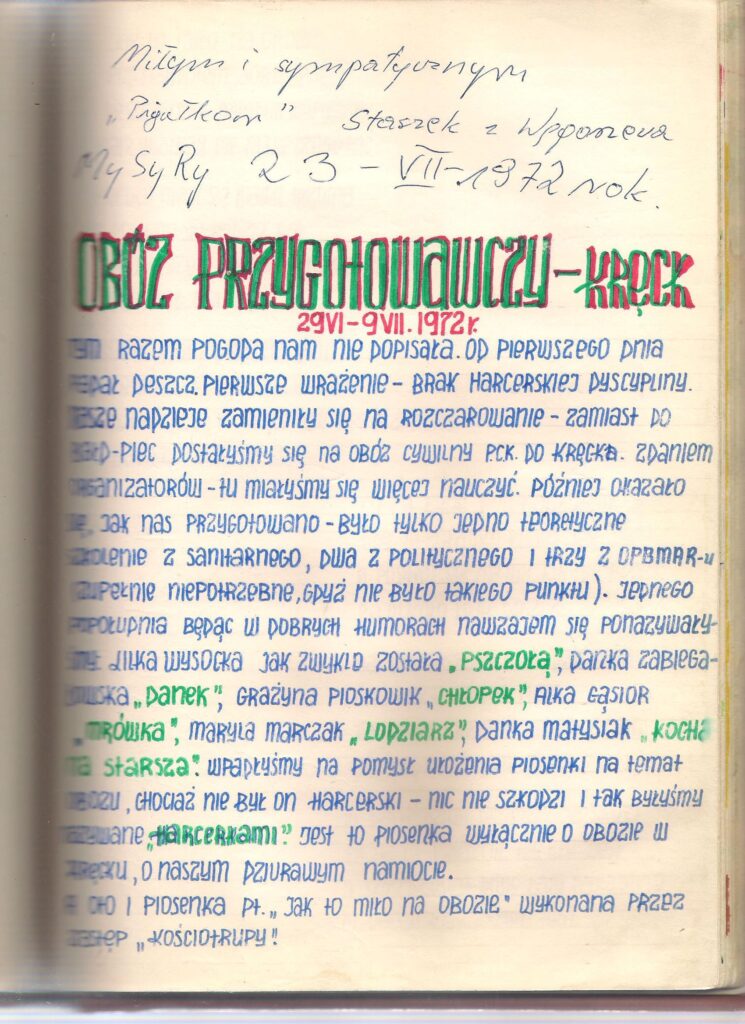 Miłym i sympatycznym
"Pigułkom" Staszek z Węgorzewa
MySyRy 23-VII-1972 rok.
OBÓZ PRZYGOTOWAWCZY - KRĘCK
29 VI - 9 VII. 1972 r.
TYM RAZEM POGODA NAM NIE DOPISAŁA. OD PIERWSZEGO DNIA
PADAŁ DESZCZ. PIERWSZE WRAŻENIE - BRAK HARCERSKIEJ DYSCYPLINY.
NASZE NADZIEJE ZAMIENIŁY SIĘ NA ROZCZAROWANIE - ZAMIAST DO
-PIEC DOSTAŁYŚMY SIĘ NA OBÓZ CYWILNY PCK. DO KRĘCKA. ZDANIEM
ORGANIZATORÓW - TU MIAŁYŚMY SIĘ WIĘCEJ NAUCZYĆ. PÓŹNIEJ OKAZAŁO
SIĘ, JAK NAS PRZYGOTOWANO - BYŁO TYLKO JEDNO TEORETYCZNE
SZKOLENIE Z SANITARNEGO, DWA Z POLITYCZNEGO I TRZY Z OPBMAR-u
ZUPEŁNIE NIEPOTRZEBNE, GDYŻ NIE BYŁO TAKIEGO PUNKTU). JEDNEGO
POPOŁUDNIA BĘDĄC W DOBRYCH HUMORACH NAWZAJEM SIĘ PONAZYWAŁY-
ŚMY: LILKA WYSOCKA JAK ZWYKLE ZOSTAŁA "PSZCZOŁĄ", DANKA ZABIEGA-
ŁOWSKA "DANEK", GRAŻYNA PIOSKOWIK "CHŁOPEK", ALKA GĄSIOR
"MRÓWKA", MARYLA MARCZAK "LODZIARZ", DANKA MATYSIAK "KOCHA
NA STARSZA". WPADŁYŚMY NA POMYSŁ UŁOŻENIA PIOSENKI NA TEMAT
OBOZU, CHOCIAŻ NIE BYŁ ON HARCERSKI - NIC NIE SZKODZI I TAK BYŁYŚMY
NAZYWANE "HARCERKAMI". JEST TO PIOSENKA WYŁĄCZNIE O OBOZIE W
KRĘCKU, O NASZYM DZIURAWYM NAMIOCIE.
A OTO I PIOSENKA PT. "JAK TO MIŁO NA OBOZIE" WYKONANA PRZEZ
ZASTĘP "KOŚCIOTRUPY"!